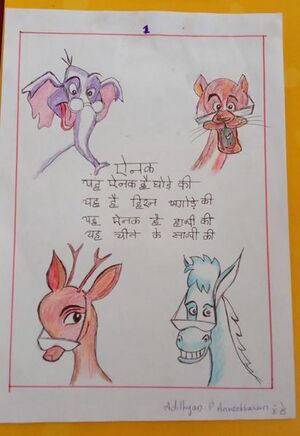 1
ऐनक
यह ऐनक है घोड़े की
यह है हिरन भगोड़े की
यह ऐनक है हाथी की
यह चीते के साथी की
Adithyan P Aneeshkumar